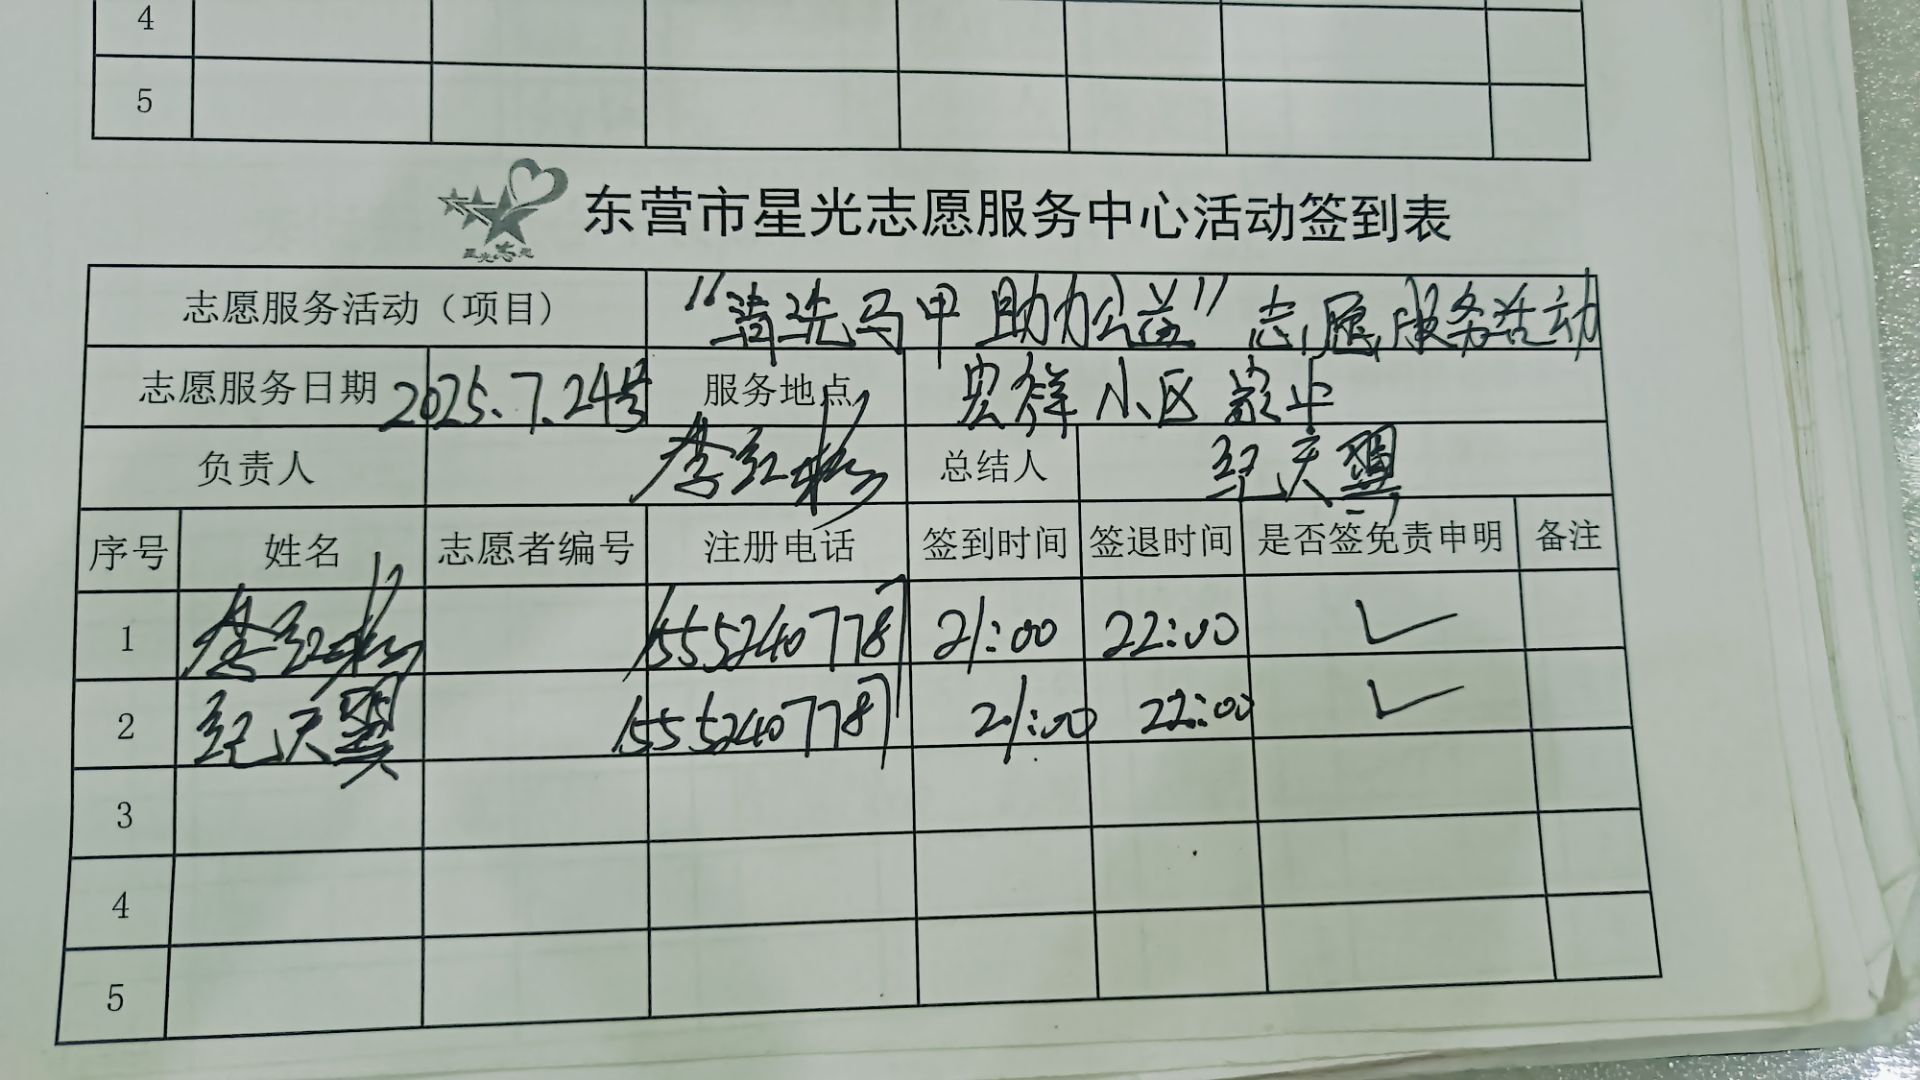 4
5
星光志愿
东营市星光志愿服务中心活动签到表
志愿服务活动（项目） “清洗马甲 助力公益”志愿服务活动
志愿服务日期 2025.7.24号 服务地点 宏祥小区
负责人 李红 总结人 纪天翼
序号 姓名 志愿者编号 注册电话 签到时间 签退时间 是否签免责申明 备注
1 李红 15552407787 21:00 22:00 ✓
2 纪天翼 15552407787 21:00 22:00 ✓
3
4
5